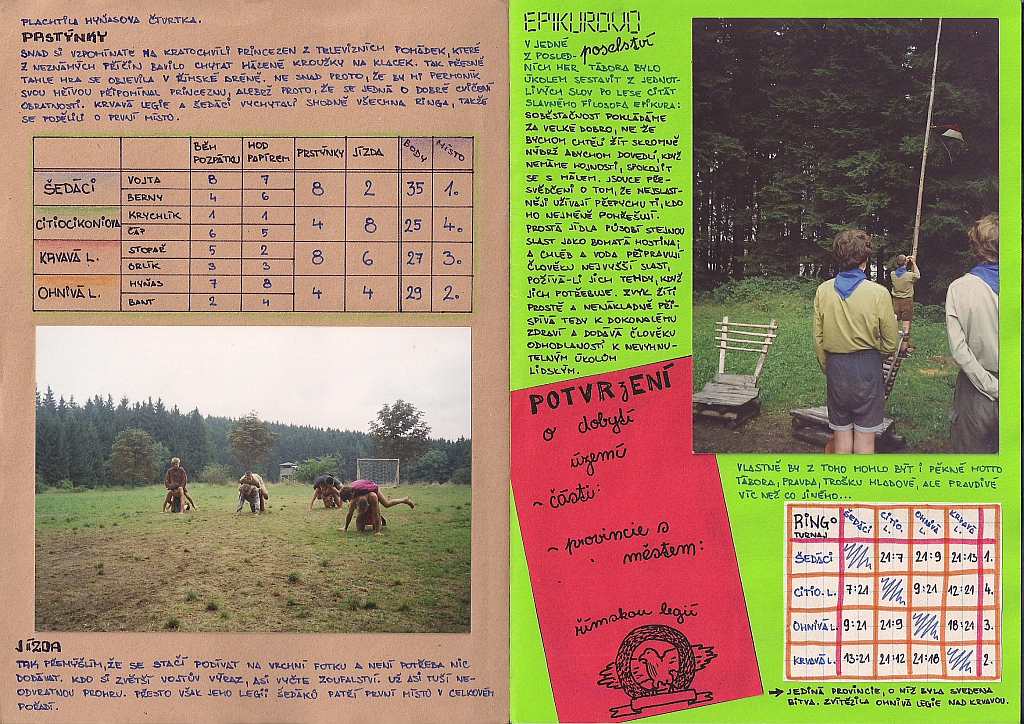 PLACHTILA HYŇASOVA ČTVRTKA.
PRSTÝNKY
SNAD SI VZPOMÍNÁTE NA KRATOCHVÍLI PRINCEZEN Z TELEVIZNÍCH POHÁDEK, KTERÉ
Z NEZNÁMÝCH PŘÍČIN BAVILO CHYTAT HÁZENÉ KROUŽKY NA KLACEK. TAK PŘESNĚ
TAHLE HRA SE OBJEVILA V ŘÍMSKÉ ARÉNĚ. NE SNAD PROTO, ŽE BY MI PERMONÍK
SVOU HŘÍVOU PŘIPOMÍNAL PRINCEZNU, ALEBRŽ PROTO, ŽE SE JEDNÁ O DOBRÉ CVIČENÍ
OBRATNOSTI. KRVAVÁ LEGIE A ŠEDÁCI VYCHYTALI SHODNĚ VŠECHNA RINGA, TAKŽE
SE PODĚLILI O PRVNÍ MÍSTO.
BĚH POZPÁTKU HOD PAPÍREM PRSTÝNKY JÍZDA BODY MÍSTO
ŠEDÁCI VOJTA 8 7 8 2 35 1.
BERNY 4 6
CITIOCIKONIOVA KRYCHLÍK 1 1 4 8 25 4.
ČÁP 6 5
KRVAVÁ L. STOPAŘ 5 2 8 6 27 3.
ORLÍK 3 3
OHNIVÁ L. HYŇAS 7 8 4 4 29 2.
BANT 2 4
JÍZDA
TAK PŘEMÝŠLÍM, ŽE SE STAČÍ PODÍVAT NA VRCHNÍ FOTKU A NENÍ POTŘEBA NIC
DODÁVAT. KDO SI ZVĚTŠÍ VOJTŮV VÝRAZ, ASI VYČTE ZOUFALSTVÍ. UŽ ASI TUŠÍ NE-
ODVRATNOU PROHRU. PŘESTO VŠAK JEHO LEGII ŠEDÁKŮ PATŘÍ PRVNÍ MÍSTO V CELKOVÉM
POŘADÍ.
EPIKUROVO
poselství
V JEDNÉ
Z POSLED-
NÍCH HER TÁBORA BYLO
ÚKOLEM SESTAVIT Z JEDNOT-
LIVÝCH SLOV PO LESE CITÁT
SLAVNÉHO FILOSOFA EPIKURA:
SOBĚSTAČNOST POKLÁDÁME
ZA VELKÉ DOBRO, NE ŽE
BYCHOM CHTĚLI ŽÍT SKROMNĚ
NÝBRŽ ABYCHOM DOVEDLI, KDYŽ
NEMÁME HOJNOSTI, SPOKOJIT
SE S MÁLEM. JSOUCE PŘE-
SVĚDČENI O TOM, ŽE NEJSLAST-
NĚJI UŽÍVAJÍ PŘEPYCHU TI, KDO
HO NEJMÉNĚ POHŘEŠUJÍ.
PROSTÁ JÍDLA PŮSOBÍ STEJNOU
SLAST JAKO BOHATÁ HOSTINA;
A CHLÉB A VODA PŘIPRAVUJÍ
ČLOVĚKU NEJVYŠŠÍ SLAST,
POŽÍVÁ-LI JICH TEHDY, KDYŽ
JICH POTŘEBUJE. ZVYK ŽÍTI
PROSTĚ A NENÁKLADNĚ PŘI-
SPÍVÁ TEDY K DOKONALÉMU
ZDRAVÍ A DODÁVÁ ČLOVĚKU
ODHODLANOSTI K NEVYHNU-
TELNÝM ÚKOLŮM
LIDSKÝM.
POTVRZENÍ
o dobytí
území
~ části:
~ provincie s
městem:
římskou legií
VLASTNĚ BY Z TOHO MOHLO BÝT I PĚKNÉ MOTTO
TÁBORA, PRAVDA, TROŠKU HLADOVÉ, ALE PRAVDIVÉ
VÍC NEŽ CO JINÉHO...
RINGO TURNAJ ŠEDÁCI CITIO. L. OHNIVÁ L. KRVAVÁ L.
ŠEDÁCI 21:7 21:9 21:13 1.
CITIO. L. 7:21 9:21 12:21 4.
OHNIVÁ L. 9:21 21:9 18:21 3.
KRVAVÁ L. 13:21 21:12 21:18 2.
→ JEDINÁ PROVINCIE, O NÍŽ BYLA SVEDENA
BITVA. ZVÍTĚZILA OHNIVÁ LEGIE NAD KRVAVOU.